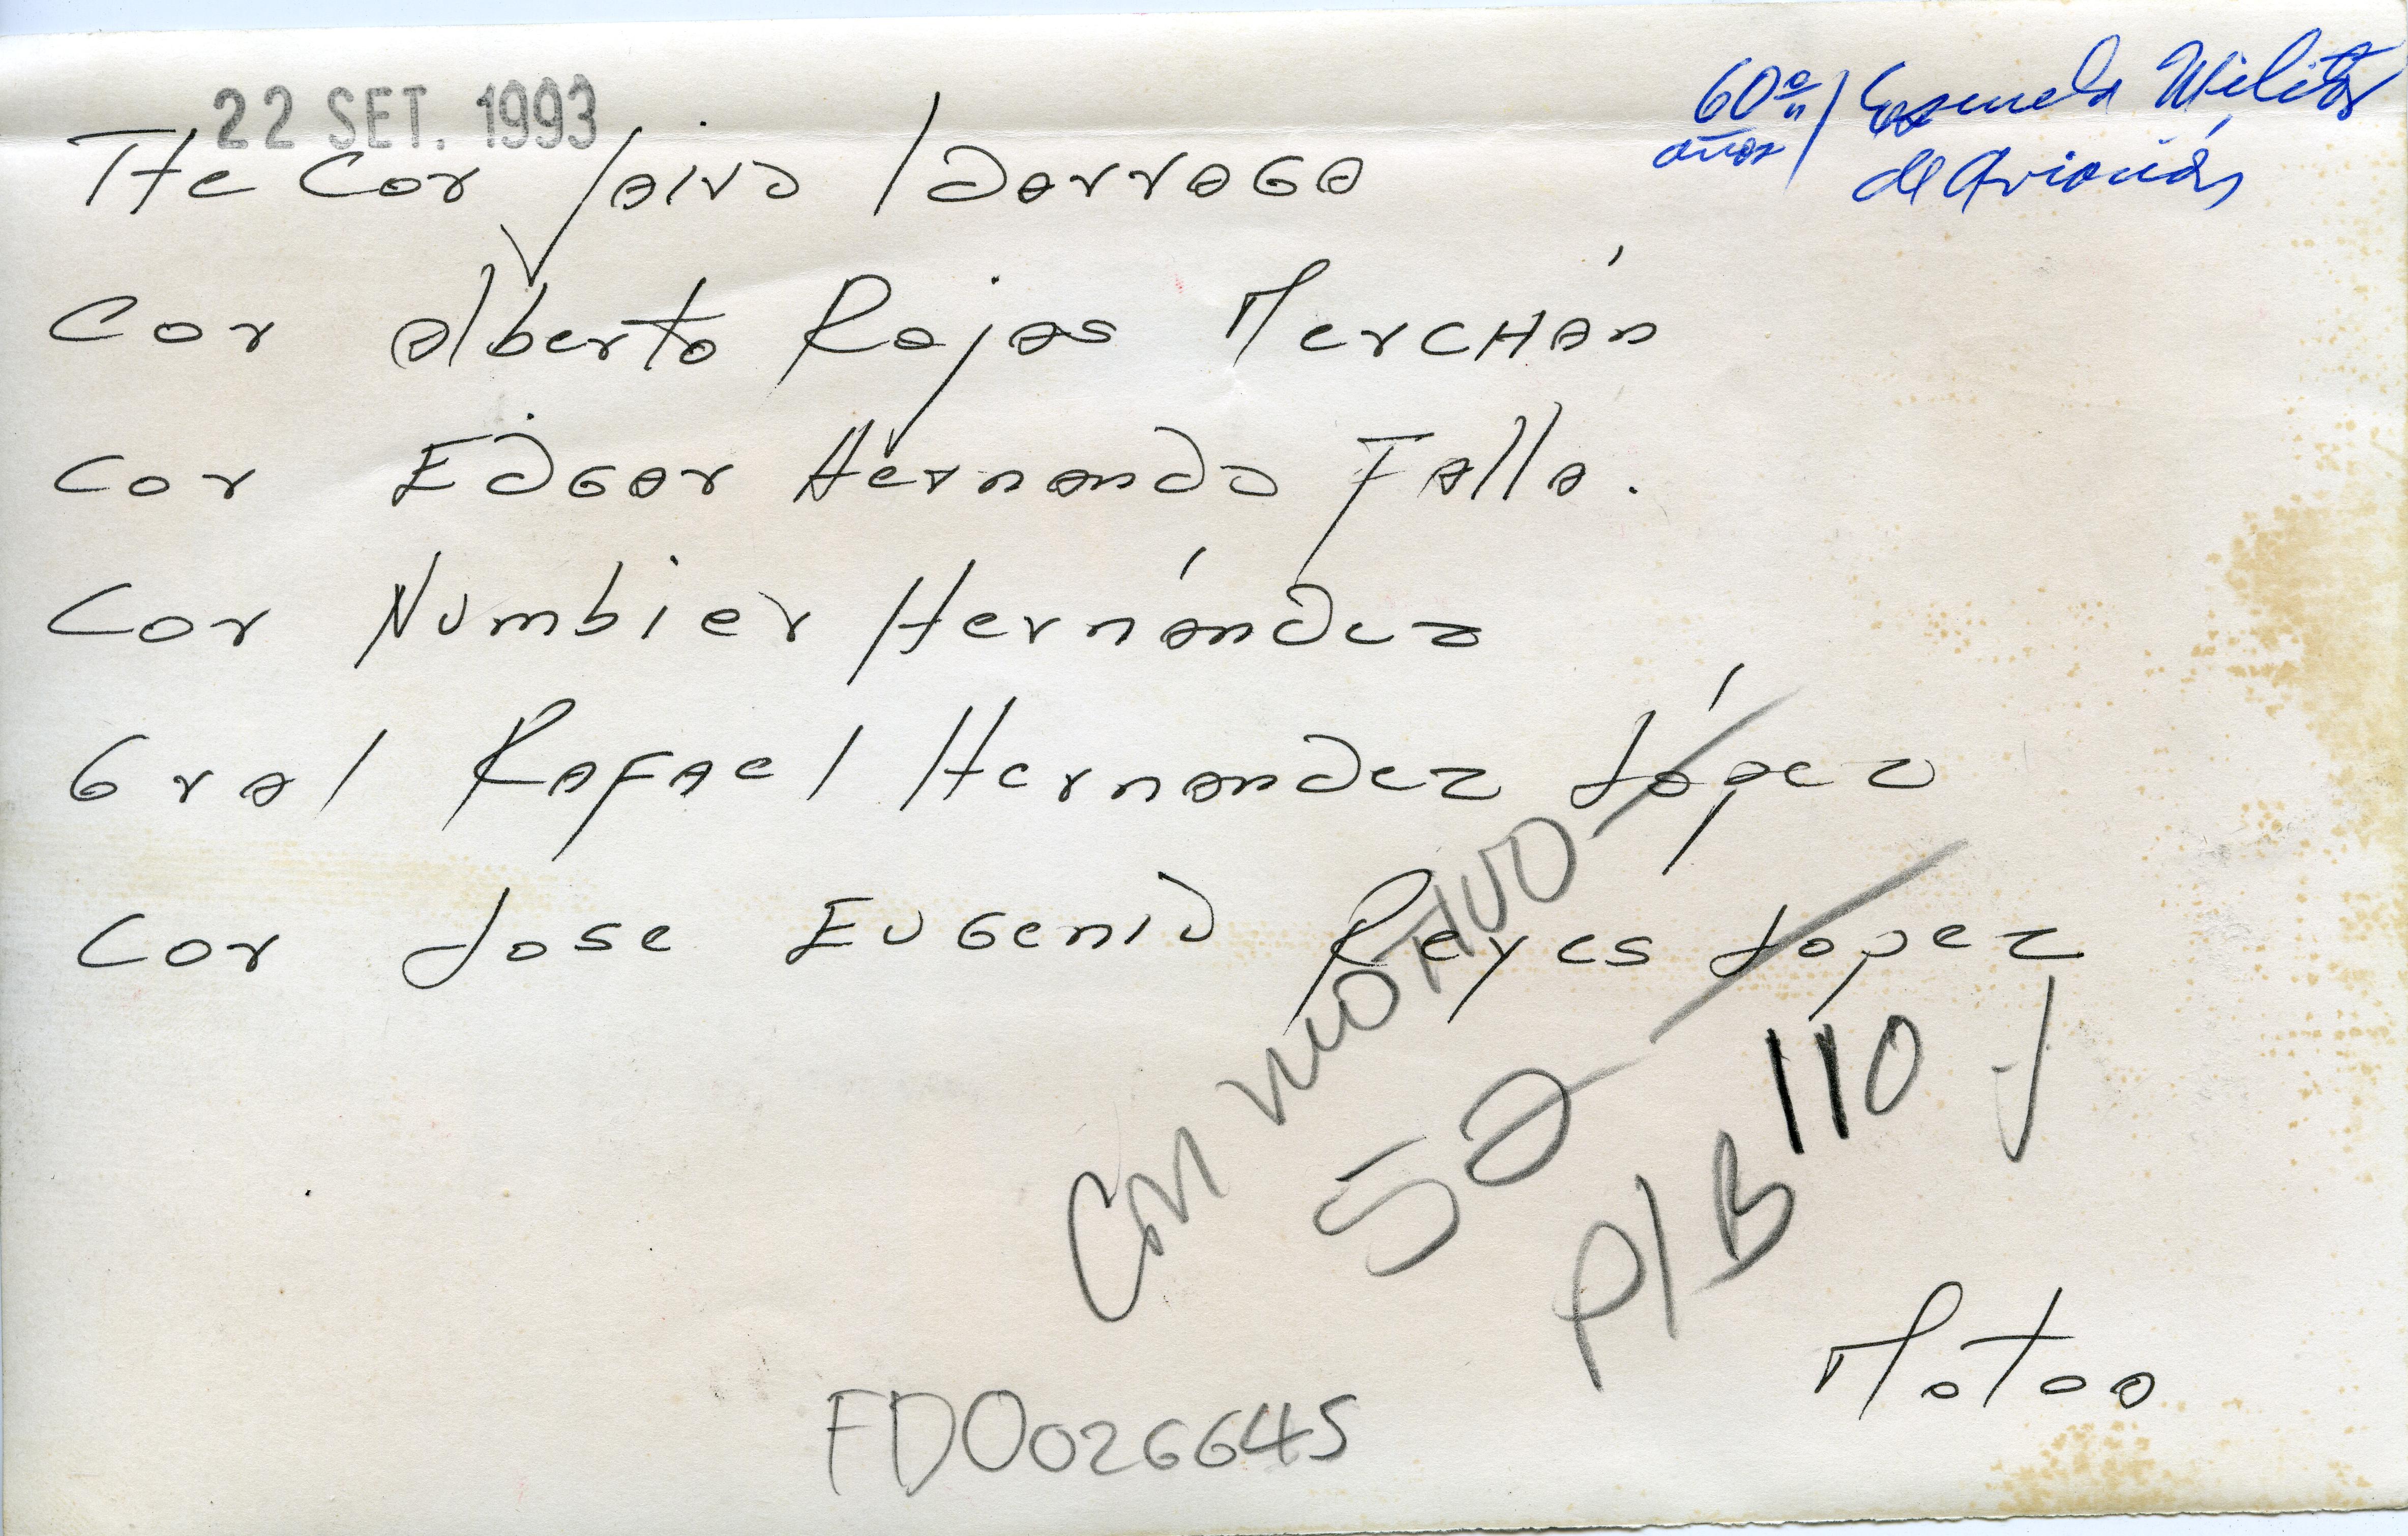 22 SET. 1993
60 años / Escuela Militar
de Aviación
Tte Cor Jairo Idarraga
Cor Alberto Rojas Merchán
Cor Edgar Hernando Falla.
Cor Numbier Hernández
Gral Rafael Hernandez López
Cor Jose Eugenio Reyes López
Con motivo
50
P/B 110
FD0026645